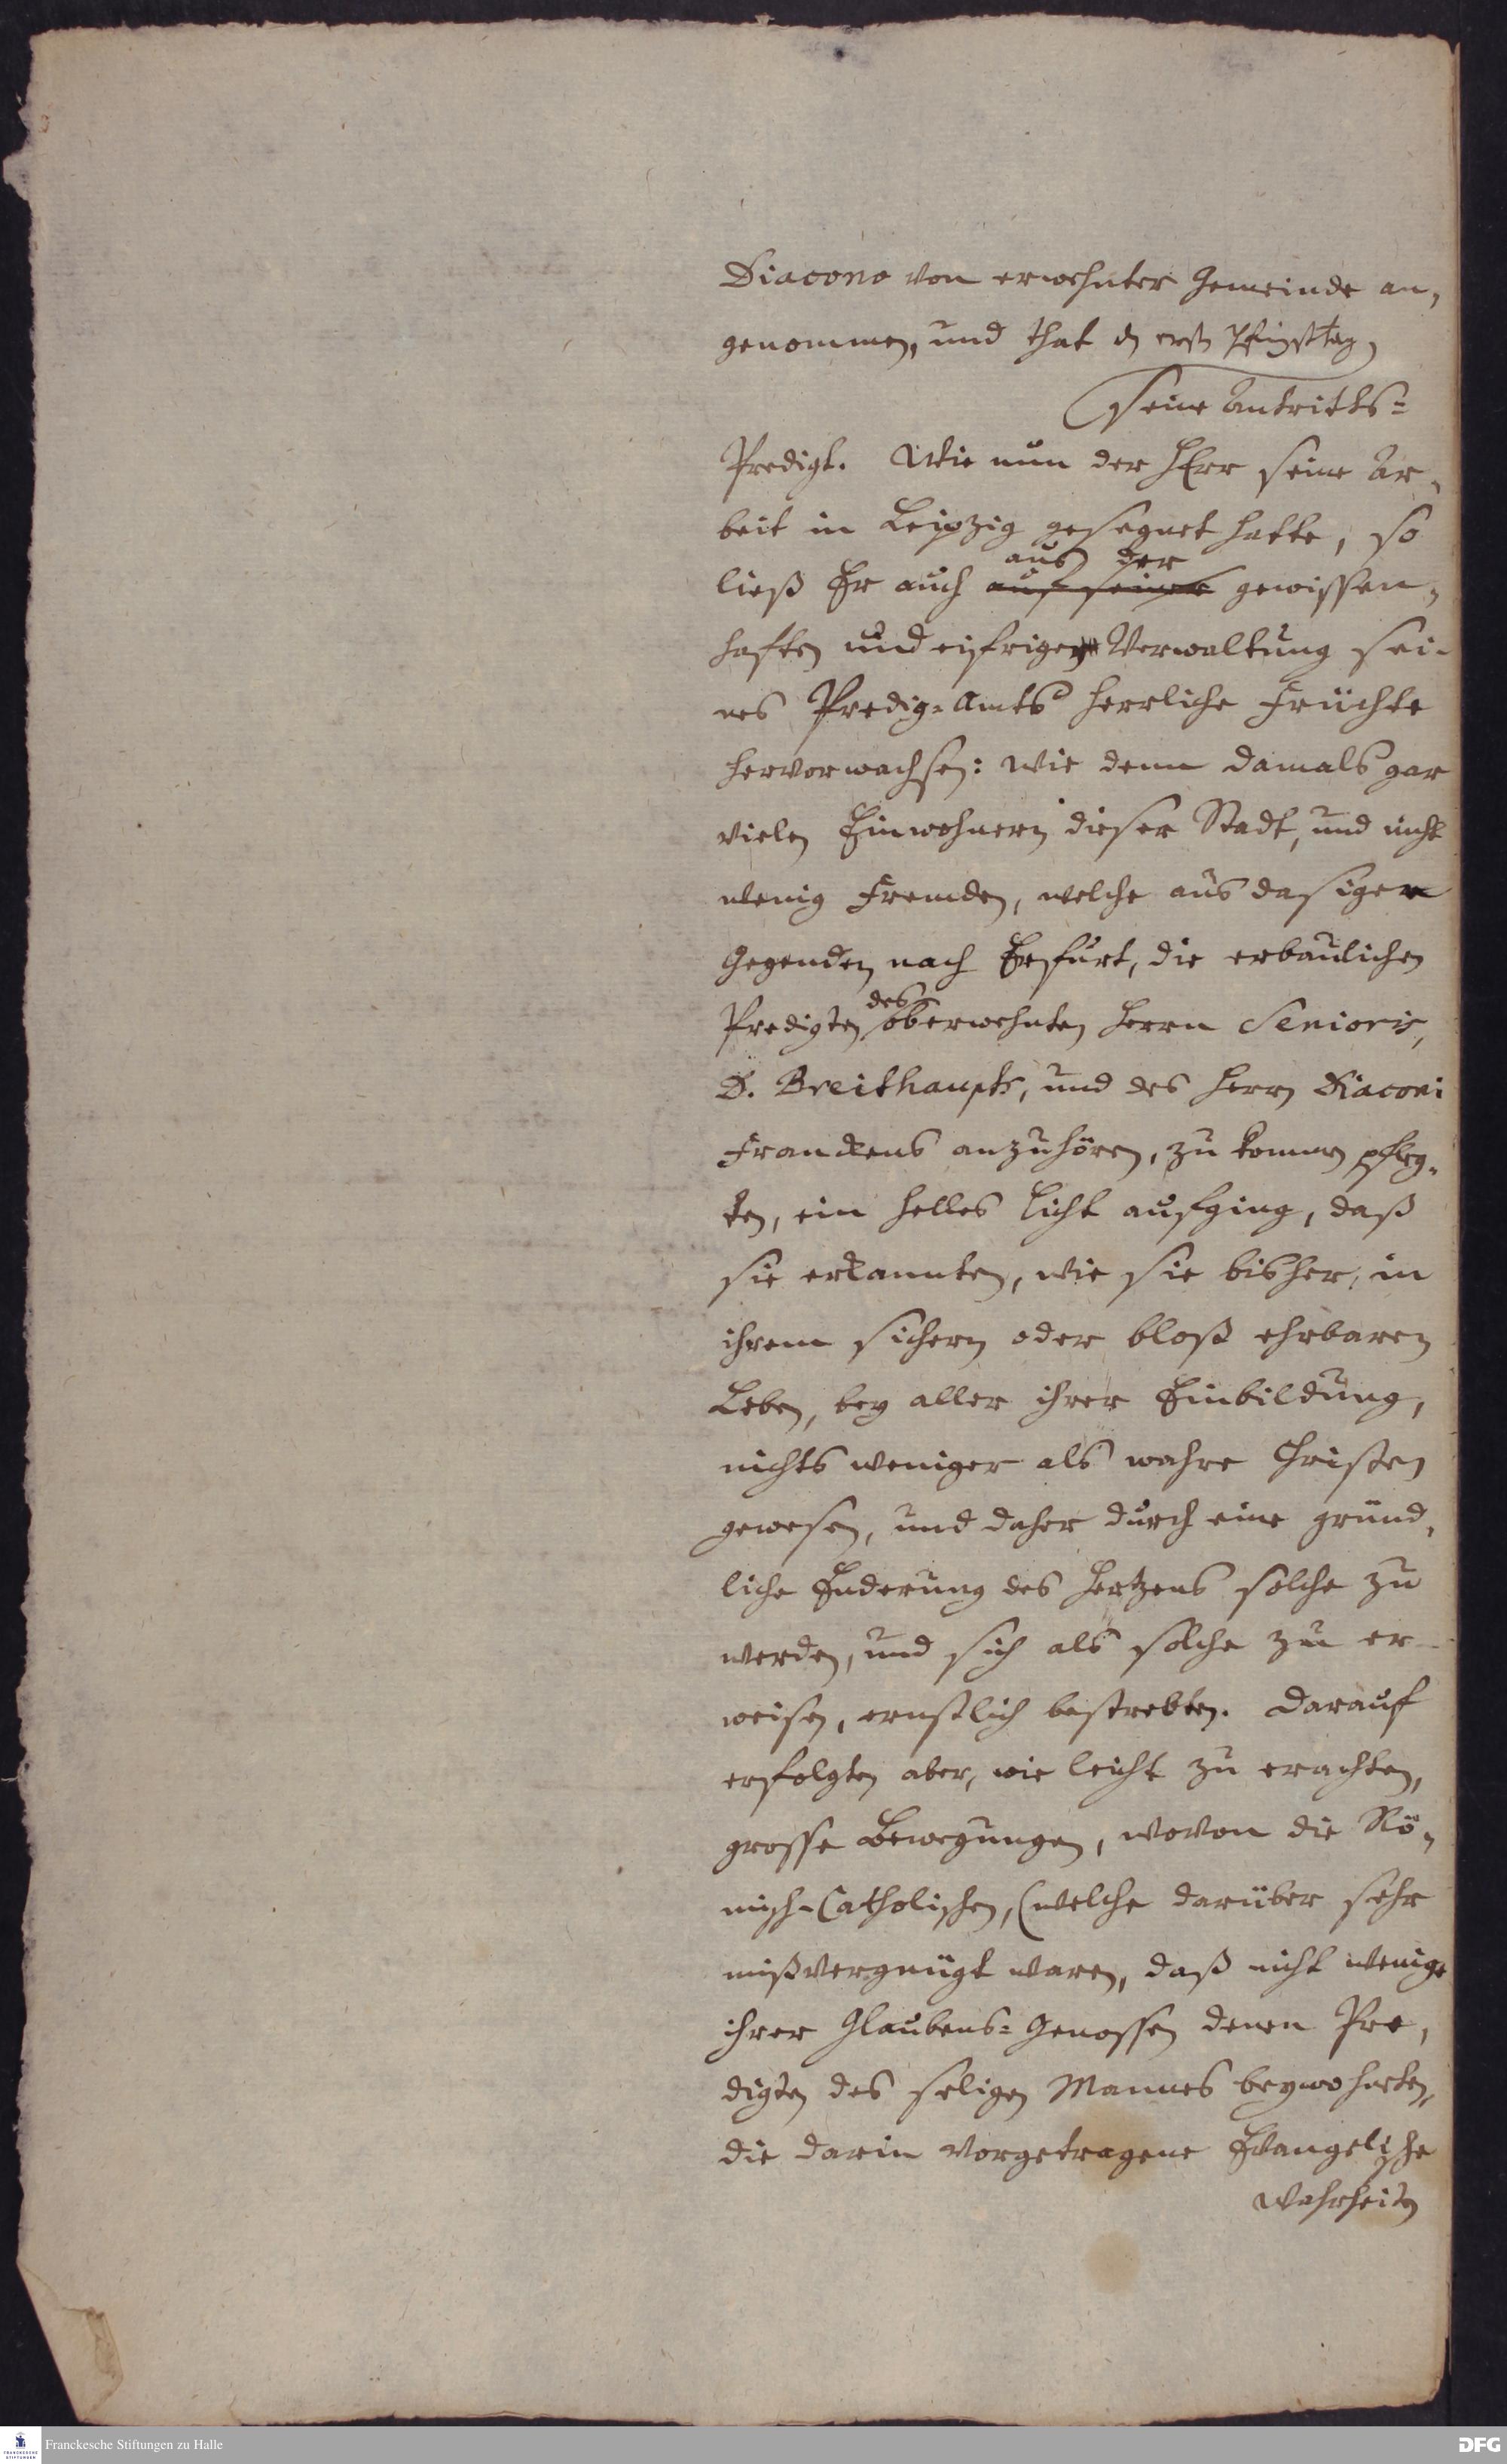 Diacono von erwehnter Gemeinde an,
genommen, und that d erst Pfingsttag
seine Antritts=
Predigt. Wie nun der HErr seine Ar,
beit in Leipzig gesegnet hatte, so
aus der
ließ Er auch auf seiner gewissen,
haften und eifrigen Verwaltung sei-
nes Predig=Amts herrliche Früchte
hervorwachsen: wie denn damals gar
vielen Einwohnern dieser Stadt, und nicht
wenig Fremden, welche aus dasigen
Gegenden nach Erfurt, die erbaulichen
des
Predigten oberwehnten Herrn Senioris,
D. Breithaupts, und des Herrn Diaconi
Franckens anzuhören, zu kommen pfleg,
ten, ein helles Licht aufging, daß
sie erkannten, wie sie bisher, in
ihrem sichern oder bloß ehrbaren
Leben, bey aller ihrer Einbildung,
nichts weniger als wahre Christen
gewesen, und daher durch eine gründ,
liche Enderung des Hertzens solche zu
werden, und sich als solche zu er-
weisen, ernstlich bestrebten. Darauf
erfolgten aber, wie leicht zu erachten,
grosse Bewegungen, wovon die Rö,
misch-Catholischen, (welche darüber sehr
mißvergnügt waren, daß nicht wenige
ihrer Glaubens=Genossen denen Pre,
digten des seligen Mannes beywohnten,
die darin vorgetragene Evangelische
Wahrheiten
Franckesche Stiftungen zu Halle
DFG